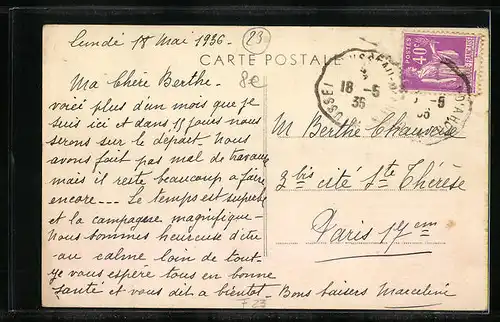 Lundi 18 Mai 1936 -
23
CARTE POSTALE
8€
Ma Chère Berthe -
voici plus d'un mois que je
suis ici et dans 11 jours nous
serons sur le départ - Nous
avons fait pas mal de travaux
mais il reste beaucoup a faire
encore --- Le temps est superbe
et la campagne magnifique -
Nous sommes heureuse d'être
au calme loin de tout -
je vous espère tous en bonne
santé et vous dit a bientot - Bons baisers Marceline
F 23
POSTES
40c
18 - 5
36
USSEL
M Berthe Chauvoise
3 bis cité Ste Thérèse
Paris 17 em